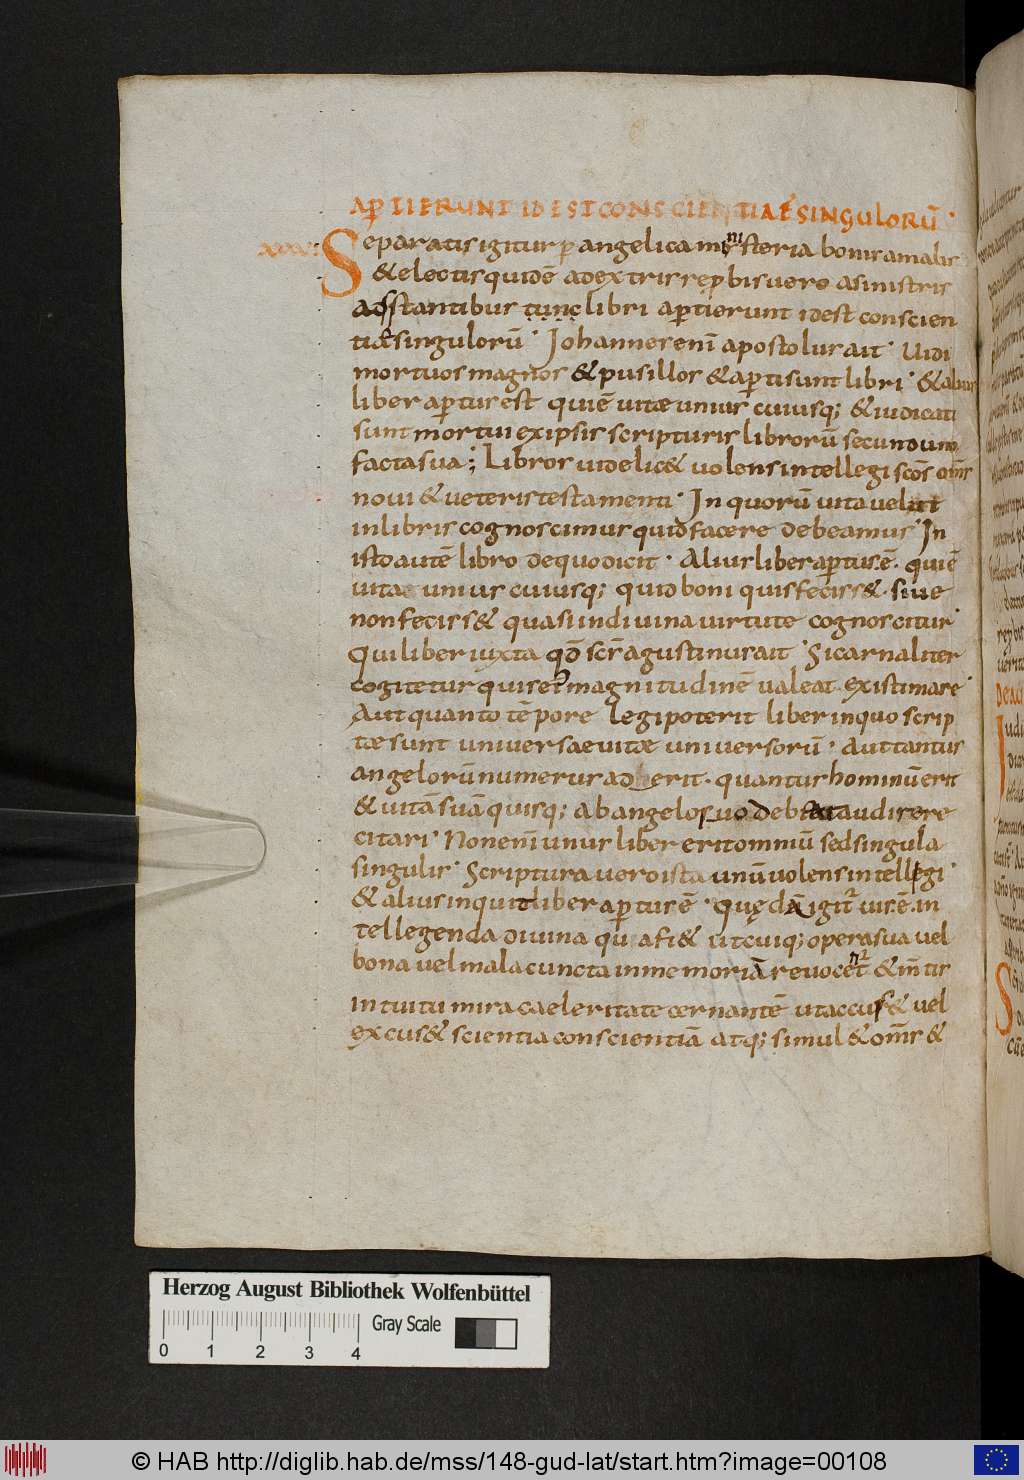 APTIERUNT ID EST CONSCIENTIAE SINGULORŪ
Separatis igitur p angelica misteria bonis a malis
& electis quidē adextris repbis uero asinistris
adstantibus tunc libri aptierunt id est conscien
tiae singulorū. Johannes enī apostolus ait. Uidi
mortuos magnos & pusillos & apti sunt libri. & alius
liber aptus est qui ē uitae unius cuiusq; & iudicati
sunt mortui ex ipsis scripturis librorū secundum
facta sua; Libros uidelic& uolens intellegi scōs om̄s
noui & ueteris testamenti. In quorū uita uelut
in libris cognoscimus quid facere debeamus. In
isto autē libro de quo dicit. Alius liber aptus ē. qui ē
uitae unius cuiusq; quid boni quis feciss&. siue
non feciss& quasi in diuina uirtute cognoscitur.
Qui liber iuxta qđ scs̄ agustinus ait. Si carnaliter
cogitetur quis ei magnitudinē ualeat existimare.
Aut quanto tēpore legi poterit liber in quo scrip
tae sunt uniuersae uitae uniuersorū. Aut tantus
angelorū numerus aderit. quantus hominū erit
& uitā suā quisq; ab angelo suo debeat audire re
citari. Non enī unus liber erit omniū sed singula
singulis. Scriptura uero ista unū uolens intellegi.
& alius inquit liber aptus ē. Quędā igit uis ē. in
tellegenda diuina qua fi& ut cuiq; opera sua uel
bona uel mala cuncta in memoriā reuocent & m̄tis
intuitu mira caeleritate cernantē ut accus& uel
excus& scientia conscientiā atq; simul & om̄s &
Herzog August Bibliothek Wolfenbüttel
Gray Scale
0 1 2 3 4
© HAB http://diglib.hab.de/mss/148-gud-lat/start.htm?image=00108